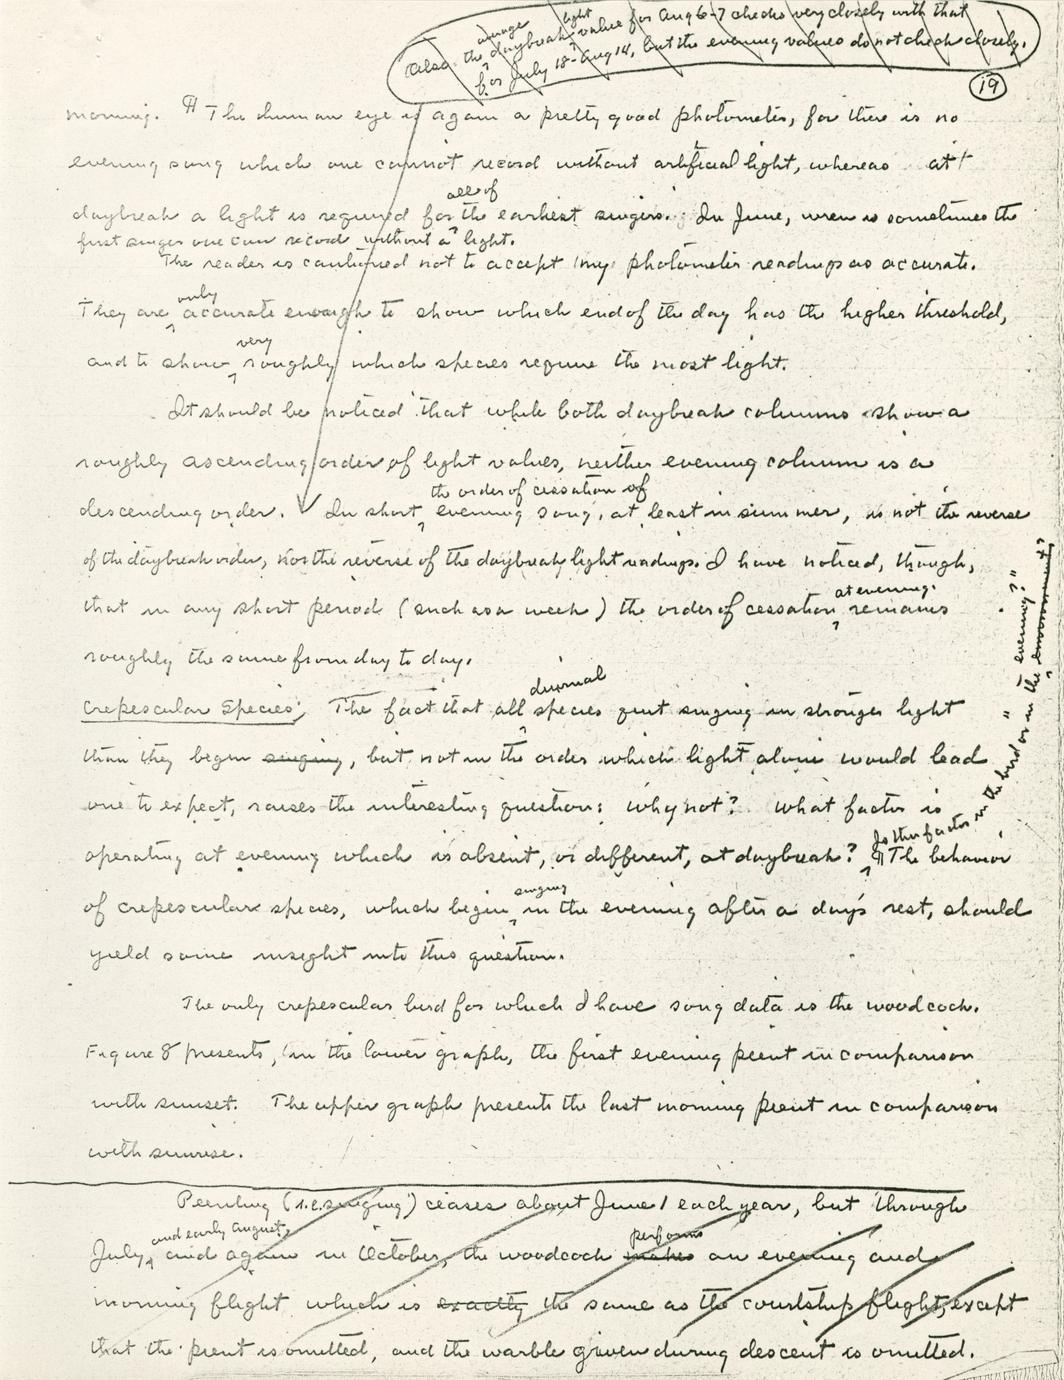 Also the average daybreak light value for Aug 6-7 checks very closely with that
for July 18-Aug 14, but the evening values do not check closely.
19
morning. ¶ The human eye is again a pretty good photometer, for there is no
evening song which one cannot record without artificial light, whereas at
daybreak a light is required for all of the earliest singers. In June, wren is sometimes the
first singer one can record without a light.
The reader is cautioned not to accept my photometer readings as accurate.
They are only accurate enough to show which end of the day has the higher threshold,
and to show very roughly which species require the most light.
It should be noticed that while both daybreak columns show a
roughly ascending order of light values, neither evening column is a
descending order. In short the order of cessation of evening song, at least in summer, is not the reverse
of the daybreak order, nor the reverse of the daybreak light readings. I have noticed, though,
that in any short period (such as a week) the order of cessation at evening remains
roughly the same from day to day.
Crepescular Species; The fact that all diurnal species quit singing in stronger light
than they begin singing, but not in the order which light alone would lead
one to expect, raises the interesting question: Why not? What factor is
operating at evening which is absent, or different, at daybreak? Is this factor in the bird or in the "evening?" environment? ¶ The behavior
of crepescular species, which begin singing in the evening after a day's rest, should
yield some insight into this question.
The only crepescular bird for which I have song data is the woodcock.
Figure 8 presents, in the lower graph, the first evening peent in comparison
with sunset. The upper graph presents the last morning peent in comparison
with sunrise.
Peenting (i.e. singing) ceases about June 1 each year, but through
July, and early August, and again in October, the woodcock makes performs an evening and
morning flight which is exactly the same as the courtship flight, except
that the peent is omitted, and the warble given during descent is omitted.